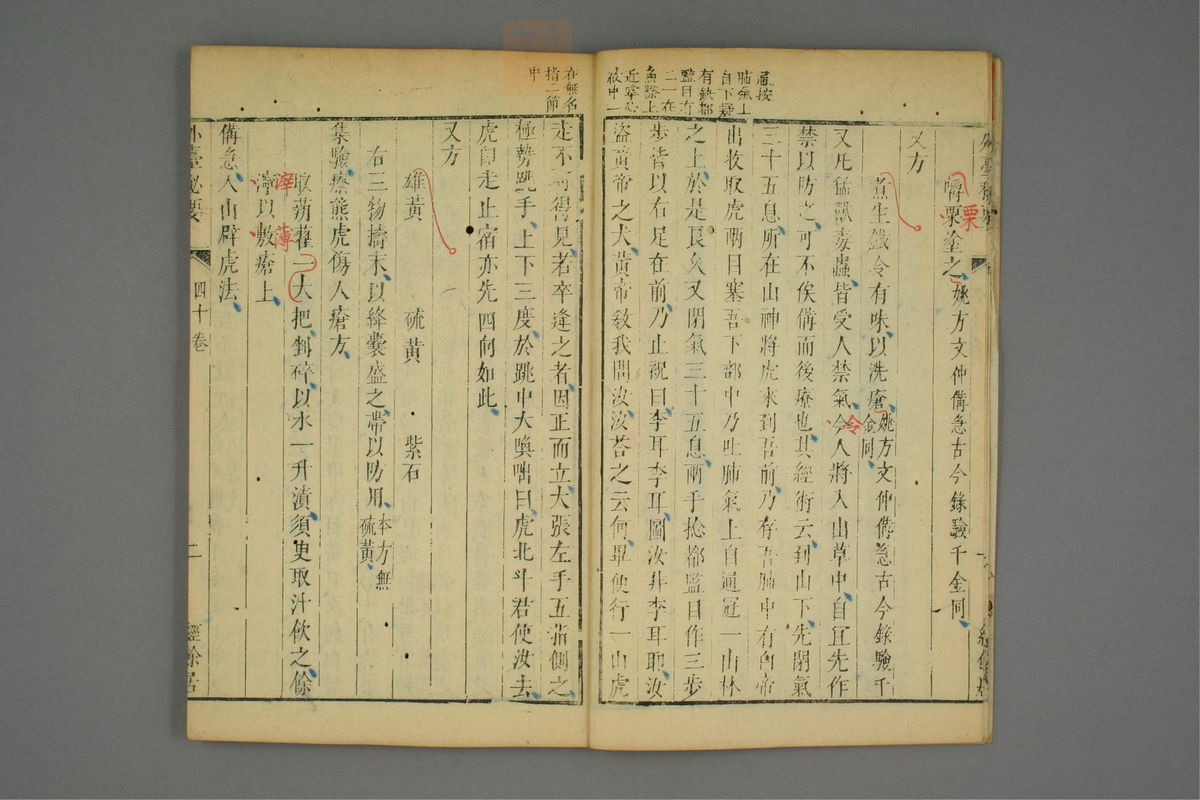 嚼栗塗之姚方文仲備急古今錄驗千金同
栗
又方
煮生鐵令有味以洗瘡姚方文仲備急古今錄驗千
金同
又凡猛獸毒蟲皆受人禁氣今人將入山草中自宜先作
令
禁以防之可不俟備而後療也其經術云到山下先閉氣
三十五息所在山神將虎來到吾前乃存吾肺中有白帝
出收取虎兩目塞吾下部中乃吐肺氣上自通冠一山林
之上於是良久又閉氣三十五息兩手捻都監目作三步
步皆以右足在前乃止祝曰李耳李耳圖汝非李耳耶汝
盜黃帝之犬黃帝教我問汝汝荅之云何畢便行一山虎
肺氣上
自下疑
有缺都
監目有
二一在
無際上
近掌心
在無名
指二節
中
走不可得見若卒逢之者因正而立大張左手五指側之
極勢跳手上下三度於跳中大喚咄曰虎北斗君使汝去
虎卽走止宿亦先四向如此
又方
雄黃 硫黃 紫石
右三物擣末以絳囊盛之帶以防用本方無
硫黃
集驗療熊虎傷人瘡方
取蒴藋一大把剉碎以水一升漬須臾取汁飲之餘
滓 薄
滓以敷瘡上
備急入山辟虎法
外臺秘要 四十卷 二 經餘居